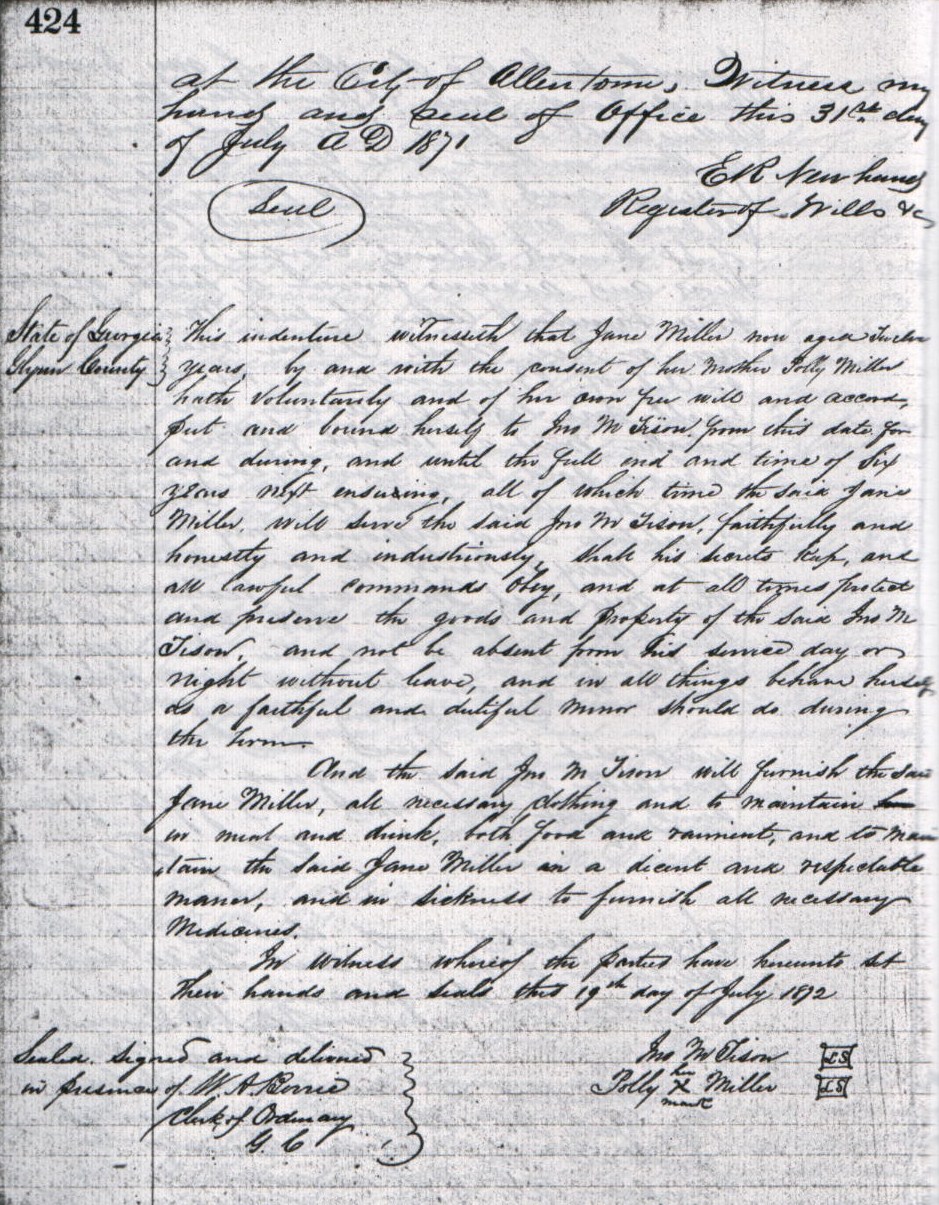 424
at the City of Allentown, Witness my
hand and Seal of Office this 31st day
of July A D 1871
E R Newhard
Register of Wills &c
Seal
State of Georgia
Glynn County
This indenture witnesseth that Jane Miller now aged Twelve
years, by and with the consent of her Mother Polly Miller
hath Voluntarily and of her own free will and accord,
put and bound herself to Jno M Tison from this date for
and during, and until the full end and time of Six
years next ensuing, all of which time the said Jane
Miller, will serve the said Jno M Tison, faithfully and
honestly and industriously, shall his secrets keep, and
all lawful commands Obey, and at all times protect
and preserve the goods and property of the said Jno M
Tison, and not be absent from his service day or
night without leave, and in all things behave herself
as a faithful and dutiful minor should do during
the term.
And the said Jno M Tison will furnish the said
Jane Miller, all necessary clothing and to maintain
in meat and drink, both food and raiment, and to main
tain the said Jane Miller in a decent and respectable
maner, and in sickness to furnish all necessary
Medicines.
In witness whereof the parties have hereunto set
their hands and seals this 19th day of July 1872
Sealed. Signed and delivered
in presence of W. A. Berrie
Clerk of Ordinary
G. C
Jno M Tison LS
Polly her X mark Miller LS